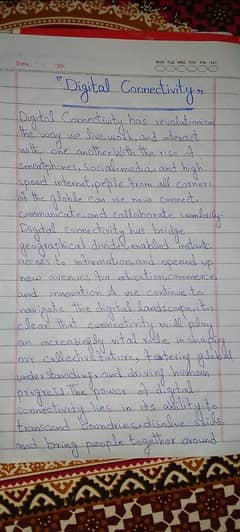 Date:
MON TUE WED THU FRI SAT
"Digital Connectivity"
Digital Connectivity has revolution
the way we live, work, and interact
with one another. With the rise of
smartphones, social media, and high
speed internet, peple from all corners
of the globle can we now connect,
communicate, and callaborate seamlessly.
Digital connectivity has bridge
geographical divides, enabled instant
access to information, and opened up
new avenues for education, commerce,
and innovation. A we continue to
navigate the digital landscape, its
clear that connectivity will play
an increasingly vital role in shaping
our collective future, fostering global
understanding, and driving human
progress. The power of digital
connectivity lies in its ability to
transcend Boundries, disolve
and bring people together around